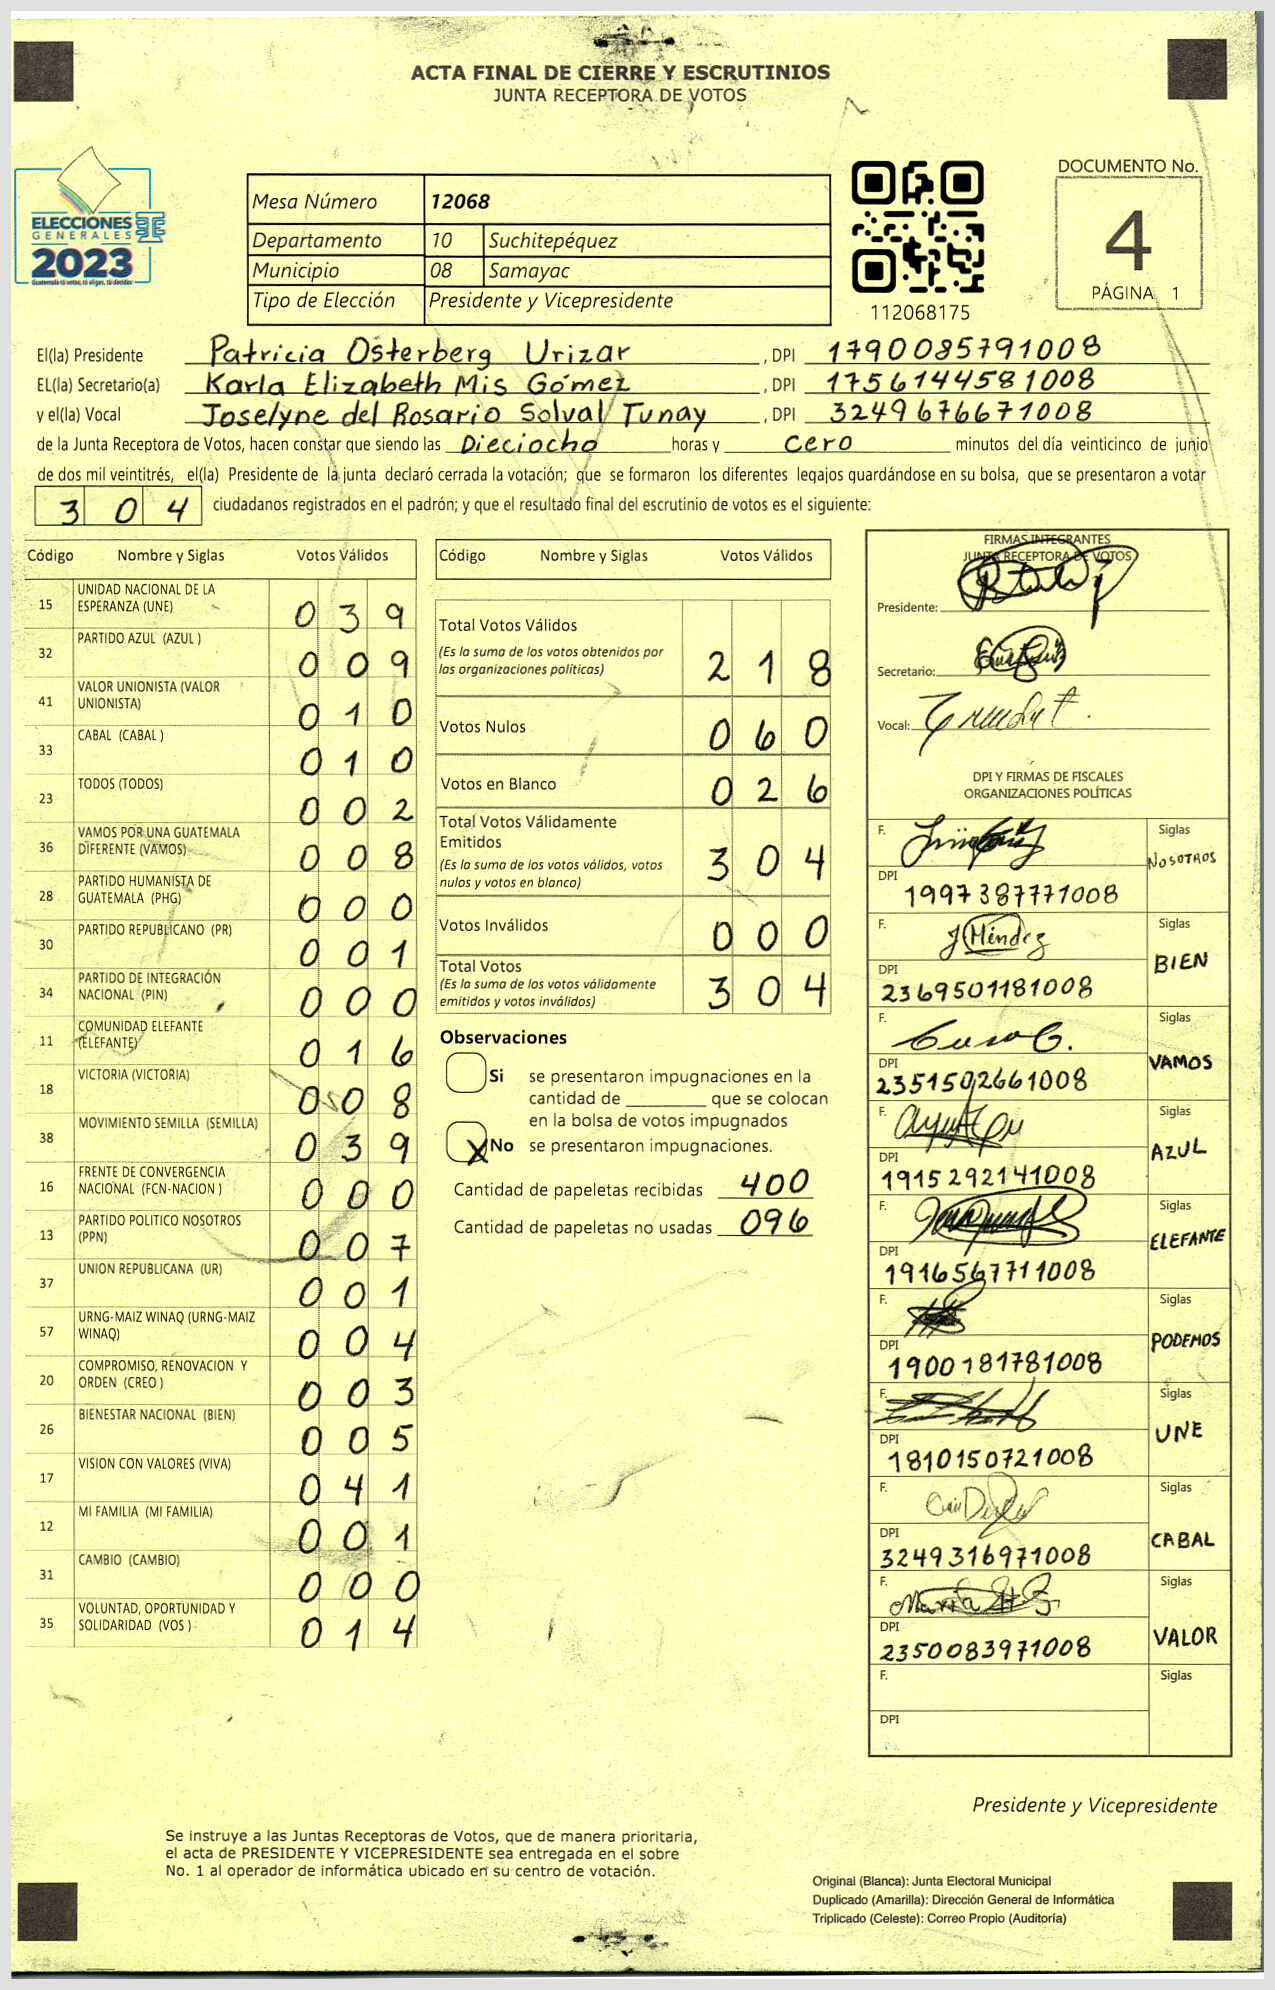 ACTA FINAL DE CIERRE Y ESCRUTINIOS
JUNTA RECEPTORA DE VOTOS
ELECCIONES
GENERALES
2023
Guatemala tú votas, tú eliges, tú decides
TSE
Mesa Número 12068
Departamento 10 Suchitepéquez
Municipio 08 Samayac
Tipo de Elección Presidente y Vicepresidente
112068175
DOCUMENTO No.
4
PÁGINA 1
El(la) Presidente Patricia Osterberg Urizar , DPI 1790085791008
EL(la) Secretario(a) Karla Elizabeth Mis Gómez , DPI 1756144581008
y el(la) Vocal Joselyne del Rosario Solval Tunay , DPI 3249676671008
de la Junta Receptora de Votos, hacen constar que siendo las Dieciocho horas y cero minutos del día veinticinco de junio
de dos mil veintitrés, el(la) Presidente de la junta declaró cerrada la votación; que se formaron los diferentes legajos guardándose en su bolsa, que se presentaron a votar
304 ciudadanos registrados en el padrón; y que el resultado final del escrutinio de votos es el siguiente:
Código Nombre y Siglas Votos Válidos
15 UNIDAD NACIONAL DE LA
ESPERANZA (UNE) 039
32 PARTIDO AZUL (AZUL ) 009
41 VALOR UNIONISTA (VALOR
UNIONISTA) 010
33 CABAL (CABAL ) 010
23 TODOS (TODOS) 002
36 VAMOS POR UNA GUATEMALA
DIFERENTE (VAMOS) 008
28 PARTIDO HUMANISTA DE
GUATEMALA (PHG) 000
30 PARTIDO REPUBLICANO (PR) 001
34 PARTIDO DE INTEGRACIÓN
NACIONAL (PIN) 000
11 COMUNIDAD ELEFANTE
(ELEFANTE) 016
18 VICTORIA (VICTORIA) 008
38 MOVIMIENTO SEMILLA (SEMILLA) 039
16 FRENTE DE CONVERGENCIA
NACIONAL (FCN-NACION ) 000
13 PARTIDO POLITICO NOSOTROS
(PPN) 007
37 UNION REPUBLICANA (UR) 001
57 URNG-MAIZ WINAQ (URNG-MAIZ
WINAQ) 004
20 COMPROMISO, RENOVACION Y
ORDEN (CREO ) 003
26 BIENESTAR NACIONAL (BIEN) 005
17 VISION CON VALORES (VIVA) 041
12 MI FAMILIA (MI FAMILIA) 001
31 CAMBIO (CAMBIO) 000
35 VOLUNTAD, OPORTUNIDAD Y
SOLIDARIDAD (VOS ) 014
Código Nombre y Siglas Votos Válidos
Total Votos Válidos
(Es la suma de los votos obtenidos por
las organizaciones políticas) 218
Votos Nulos 060
Votos en Blanco 026
Total Votos Válidamente
Emitidos
(Es la suma de los votos válidos, votos
nulos y votos en blanco) 304
Votos Inválidos 000
Total Votos
(Es la suma de los votos válidamente
emitidos y votos inválidos) 304
Observaciones
Si se presentaron impugnaciones en la
cantidad de ________ que se colocan
en la bolsa de votos impugnados
X No se presentaron impugnaciones.
Cantidad de papeletas recibidas 400
Cantidad de papeletas no usadas 096
FIRMAS INTEGRANTES
JUNTA RECEPTORA DE VOTOS
Presidente:
Secretario:
Vocal:
DPI Y FIRMAS DE FISCALES
ORGANIZACIONES POLÍTICAS
F. Siglas
NOSOTROS
DPI
1997387771008
F. J Méndez Siglas
BIEN
DPI
2369501181008
F. Siglas
VAMOS
DPI
2351502661008
F. Siglas
AZUL
DPI
1915292141008
F. Siglas
ELEFANTE
DPI
1916567711008
F. Siglas
PODEMOS
DPI
1900181781008
F. Siglas
UNE
DPI
1810150721008
F. Siglas
CABAL
DPI
3249316971008
F. María Siglas
VALOR
DPI
2350083971008
F. Siglas
DPI
Presidente y Vicepresidente
Se instruye a las Juntas Receptoras de Votos, que de manera prioritaria,
el acta de PRESIDENTE Y VICEPRESIDENTE sea entregada en el sobre
No. 1 al operador de informática ubicado en su centro de votación.
Original (Blanca): Junta Electoral Municipal
Duplicado (Amarilla): Dirección General de Informática
Triplicado (Celeste): Correo Propio (Auditoría)